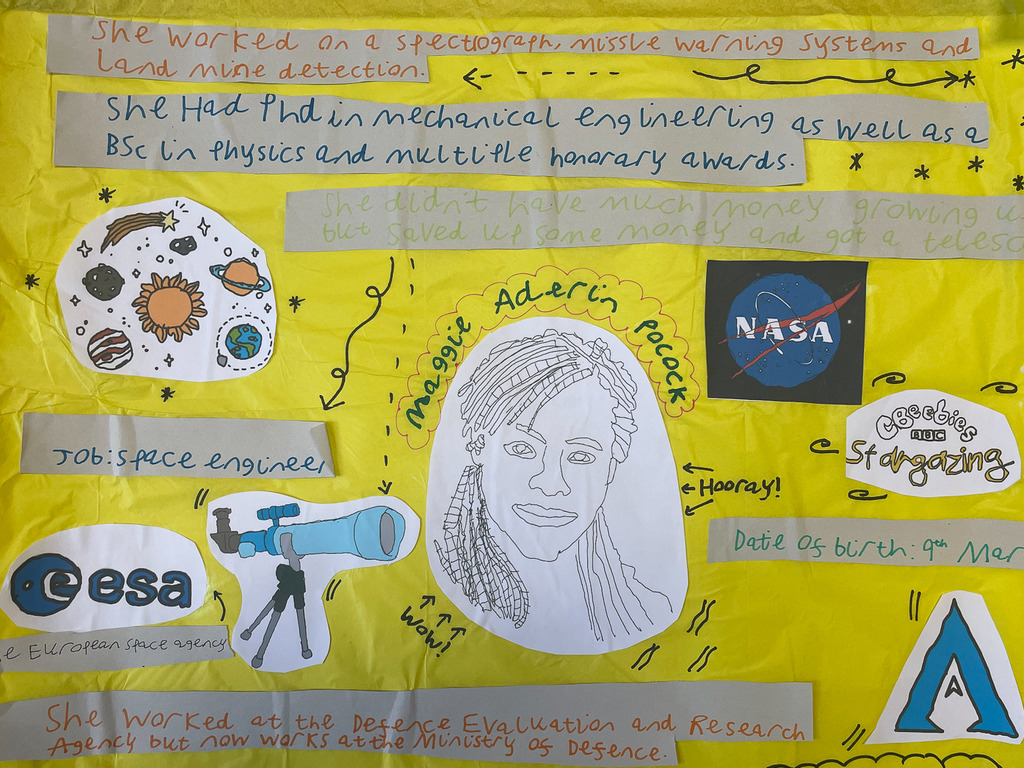 She worked on a spectrograph, missle warning systems and
land mine detection.
She Had Phd in mechanical engineering as well as a
BSc in Physics and multiple honorary awards.
She didn't have much money growing u
but saved up some money and got a telesc
Maggie Aderin Pocock
NASA
Cbeebies
BBC
Stargazing
Job: space engineer
Hooray!
Date of birth: 9th Mar
esa
e European space agency
Wow!
She worked at the Defence Evaluation and Research
Agency but now works at the Ministry of Defence.